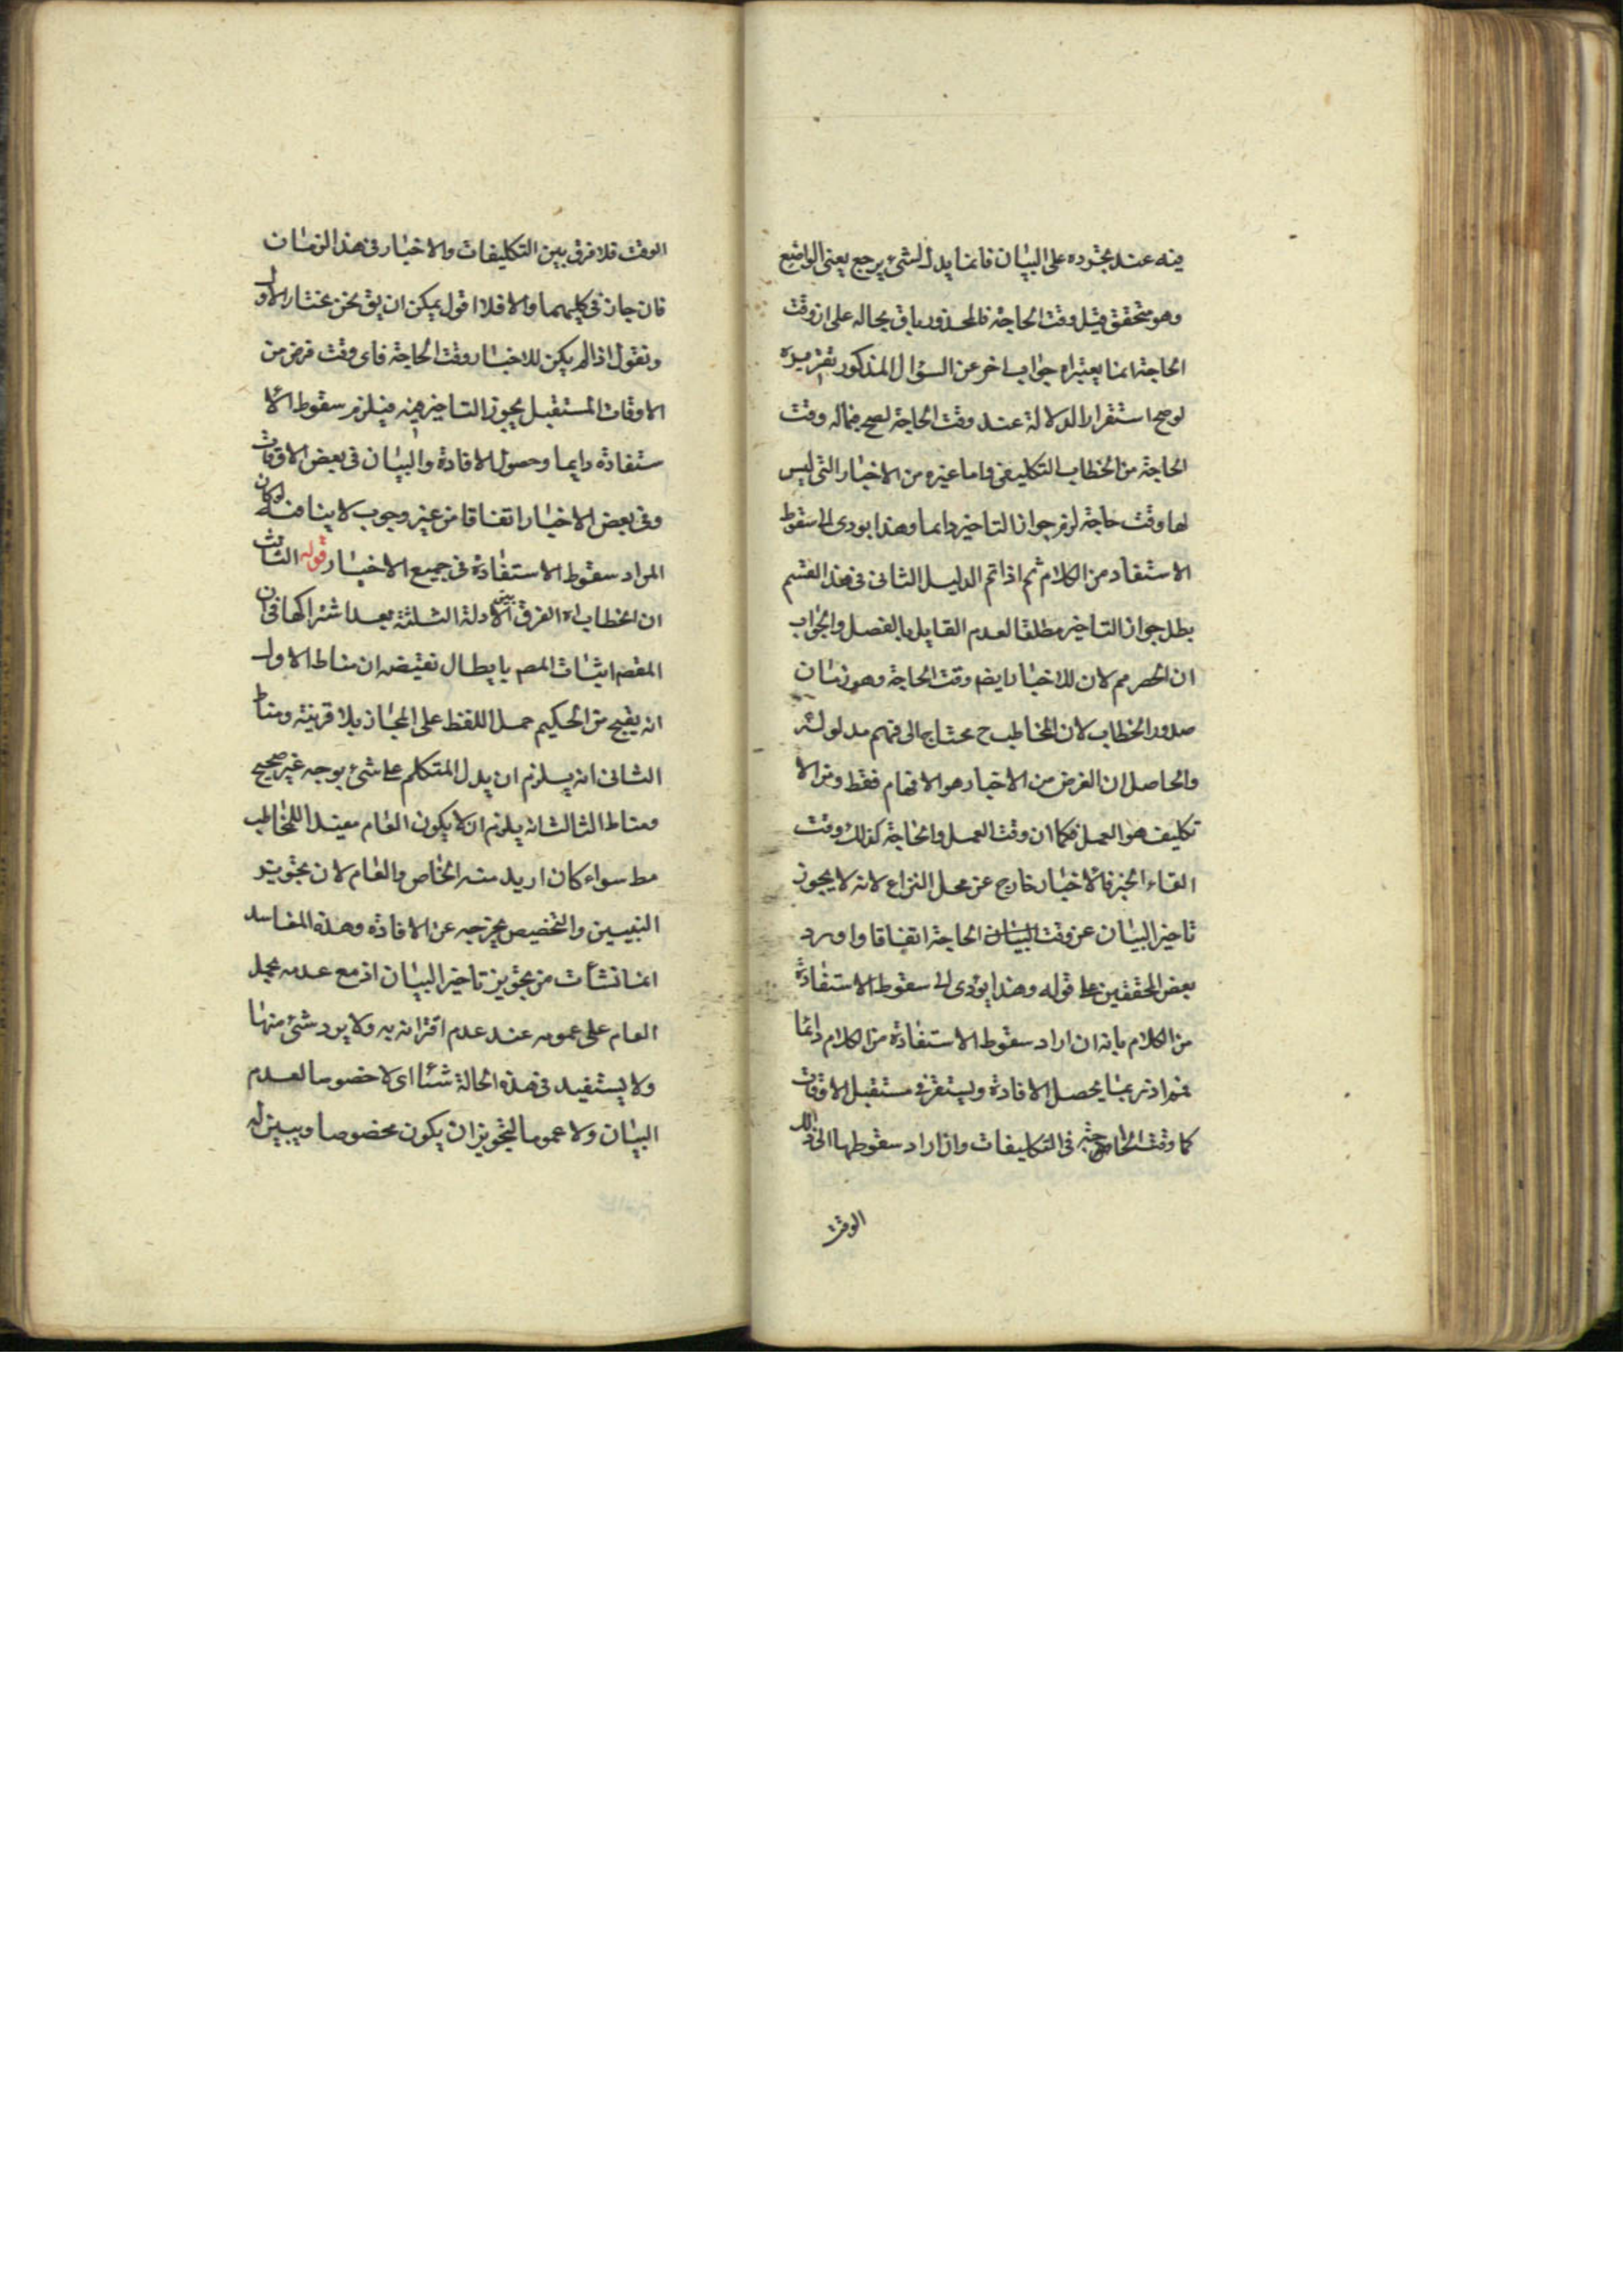 فيه عند تجرده على البيان فانما يدل الشيء يرجع يعنى الواضع
وهو متحقق قبل وقت الحاجة فالمحذور باق بحاله على ان وقت
الحاجة انما يعتبر اه جواب اخر عن السؤال المذكور تقريره
لو صح استقرار الدلالة عند وقت الحاجة لصح فيما له وقت
الحاجة من الخطاب التكليفى واما غيره من الاخبار التى ليس
لها وقت حاجة لزم جواز التاخير دايما وهذا يودى الى سقوط
الاستفاد من الكلام ثم اذا تم الدليل الثانى فى هذا القسم
بطل جواز التاخير مطلقا لعدم القايل بالفصل والجواب
ان الحصر مم لان للاخبار ايضا وقت الحاجة وهو زمان
صدور الخطاب لان المخاطب ح محتاج الى فهم مدلوله
والحاصل ان الغرض من الاخبار هو الافهام فقط ومن الا
تكليف هو العمل فكما ان وقت العمل والحاجة كذلك وقت
القاء الخبر فالاخبار خارج عن محل النزاع لانه لا يجوز
تاخير البيان عن وقت البيان الحاجة اتفاقا واورد
بعض المحققين على قوله وهذا يؤدى الى سقوط الاستفادة
من الكلام بانه ان اراد سقوط الاستفادة من الكلام دائما
فم اذ ربما يحصل الافادة ويستقر فى مستقبل الاوقات
كما وقت الحاجة فى التكليفات وان اراد سقوطها الى ذلك
الوقت
الوقت فلا فرق بين التكليفات والاخبار فى هذا الزمان
فان جاز فى كليهما والا فلا اقول يمكن ان يق نحن نختار الاول
ونقول اذا لم يكن للاخبار وقت الحاجة فاى وقت فرض من
الاوقات المستقبل يجوز التاخير فيه فيلزم سقوط الا
ستفادة دايما وحصول الافادة والبيان فى بعض الاوقات
وفى بعض الاخبار اتفاقا من غير وجوب لا ينافيه لو كان
المراد سقوط الاستفادة فى جميع الاخبار قوله الثالث
ان الخطاب اه الفرق بين الادلة الثلثة بعد اشتراكها فى ان
المقصم اثبات المص بابطال نقيضه ان مناط الاول
انه يقبح من الحكيم حمل اللفظ على المجاز بلا قرينة ومناط
الثانى انه يسلزم ان يدل المتكلم على شىء بوجه غير صحيح
ومناط الثالث انه يلزم ان لا يكون العام مفيدا للمخاطب
مط سواء كان اريد منه الخاص والعام لان تجويز
التبيين والتخصيص يخرجه عن الافادة وهذة المفاسد
انما نشأت من تجويز تاخير البيان اذ مع عدمه يحمل
العام على عمومه عند عدم اقترانه به ولا يرد شئ منها
ولا يستفيد فى هذة الحالة شئا اى لا خصوصا لعدم
البيان ولا عموما لتجويز ان يكون مخصوصا ويبين له